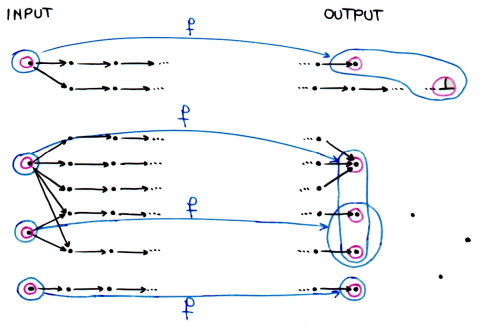 INPUT OUTPUT
f
⊥
f
f
f